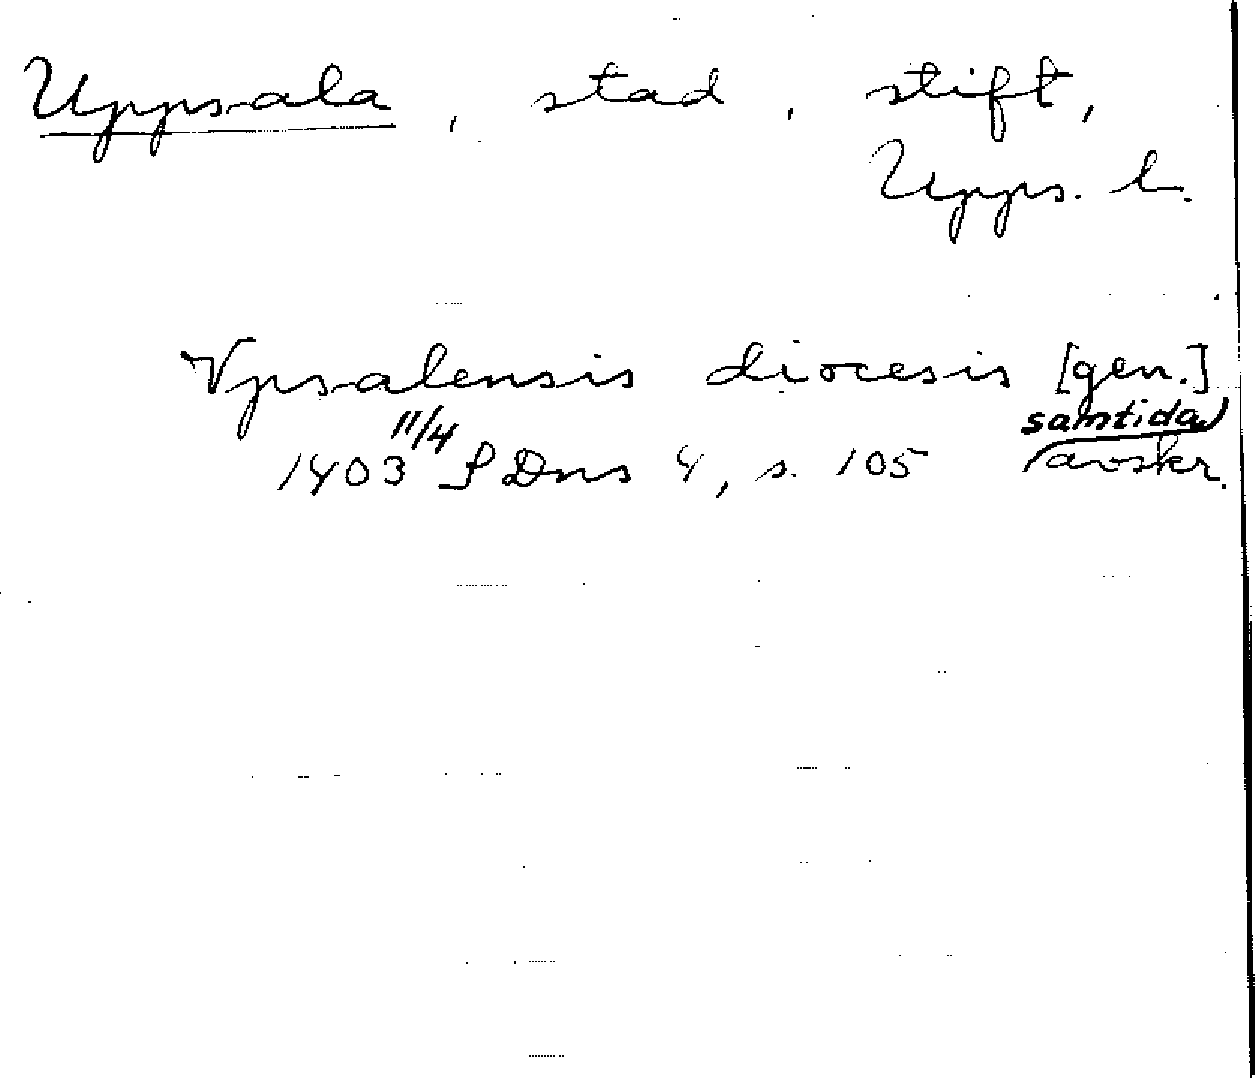 Uppsala, stad, stift,
Upps. l.
Vpsalensis diocesis [gen.]
11/4 samtida
1403 SDns 4, s. 105 avskr.